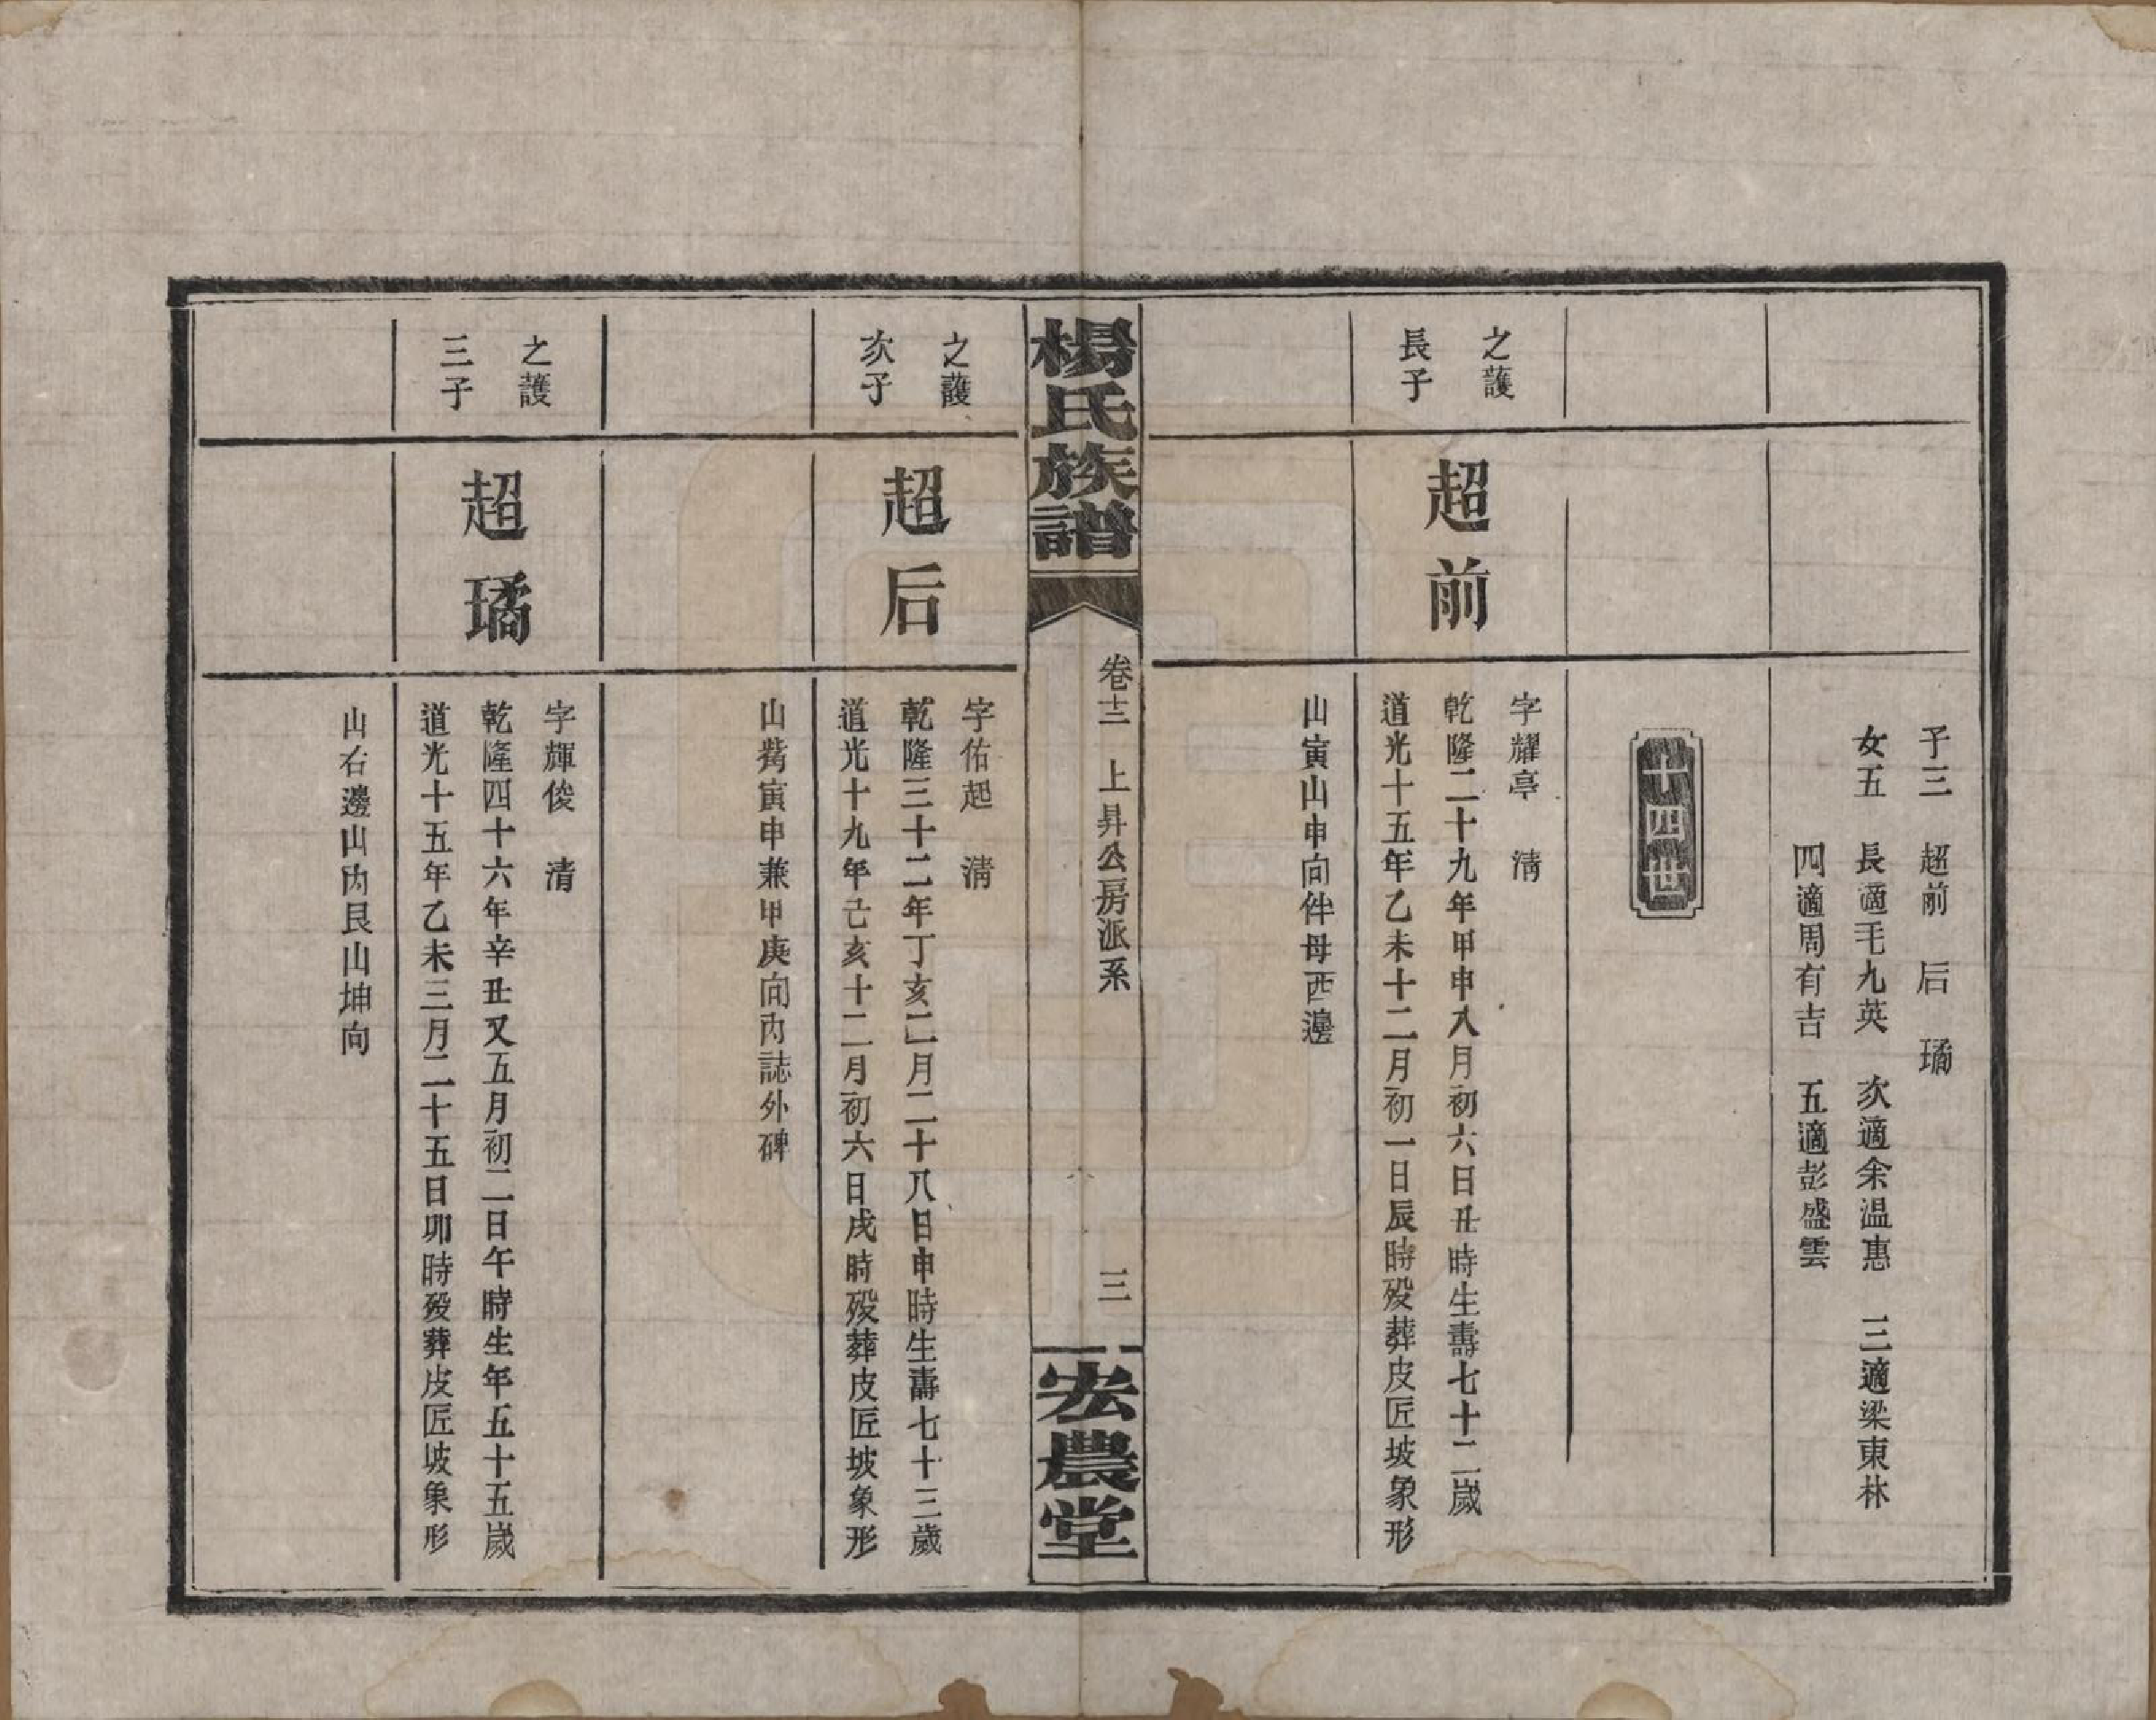 子三　超前　后　璚
女五　長適毛九英　次適余温惠　三適梁東林
四適周有吉　五適彭盛雲
十四世
之護
長子
超前
字耀亭　清
乾隆二十九年甲申八月初六日丑時生壽七十二歲
道光十五年乙未十二月初一日辰時殁葬皮匠坡象形
山寅山申向伴母西邊
楊氏族譜
卷十三　上昇公房派系
三
宏農堂
之護
次子
超后
字佑起　清
乾隆三十二年丁亥二月二十八日申時生壽七十三歲
道光十九年己亥十二月初六日戌時殁葬皮匠坡象形
山觜寅申兼甲庚向內誌外碑
之護
三子
超璚
字輝俊　清
乾隆四十六年辛丑又五月初二日午時生年五十五歲
道光十五年乙未三月二十五日卯時殁葬皮匠坡象形
山右邊山內艮山坤向